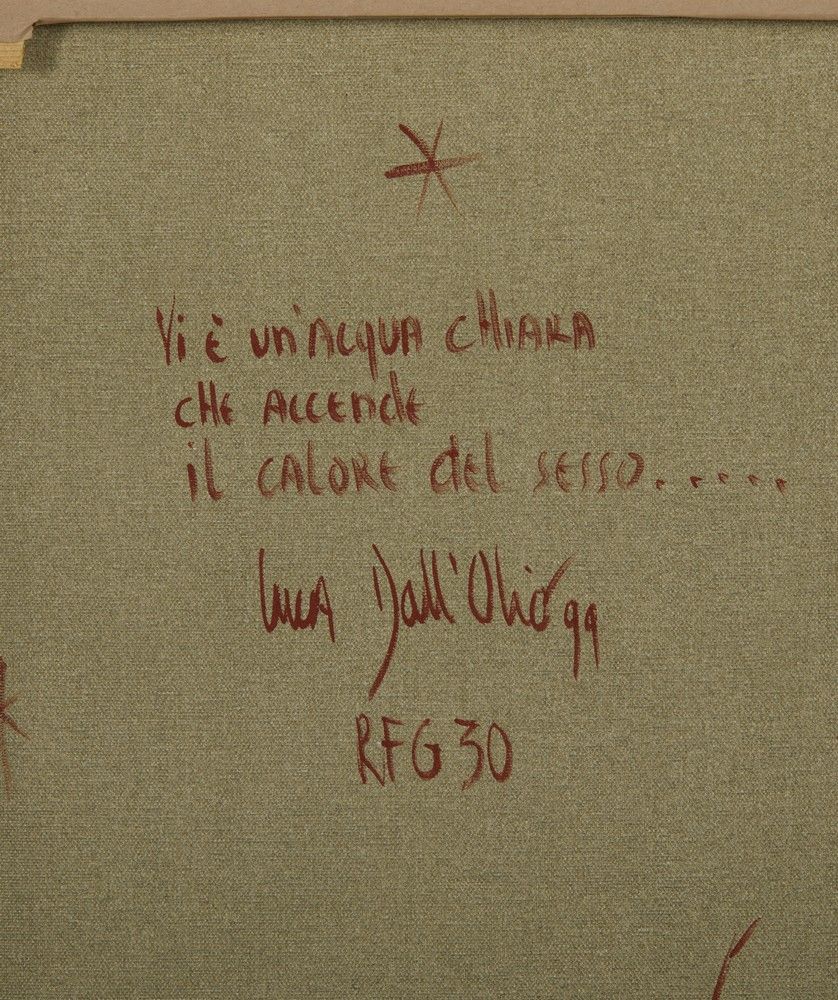 Vi è un'ACQUA CHIARA
CHE ACCENDE
il CALORE del SESSO......
Luca Dall'Olio '99
RFG 30